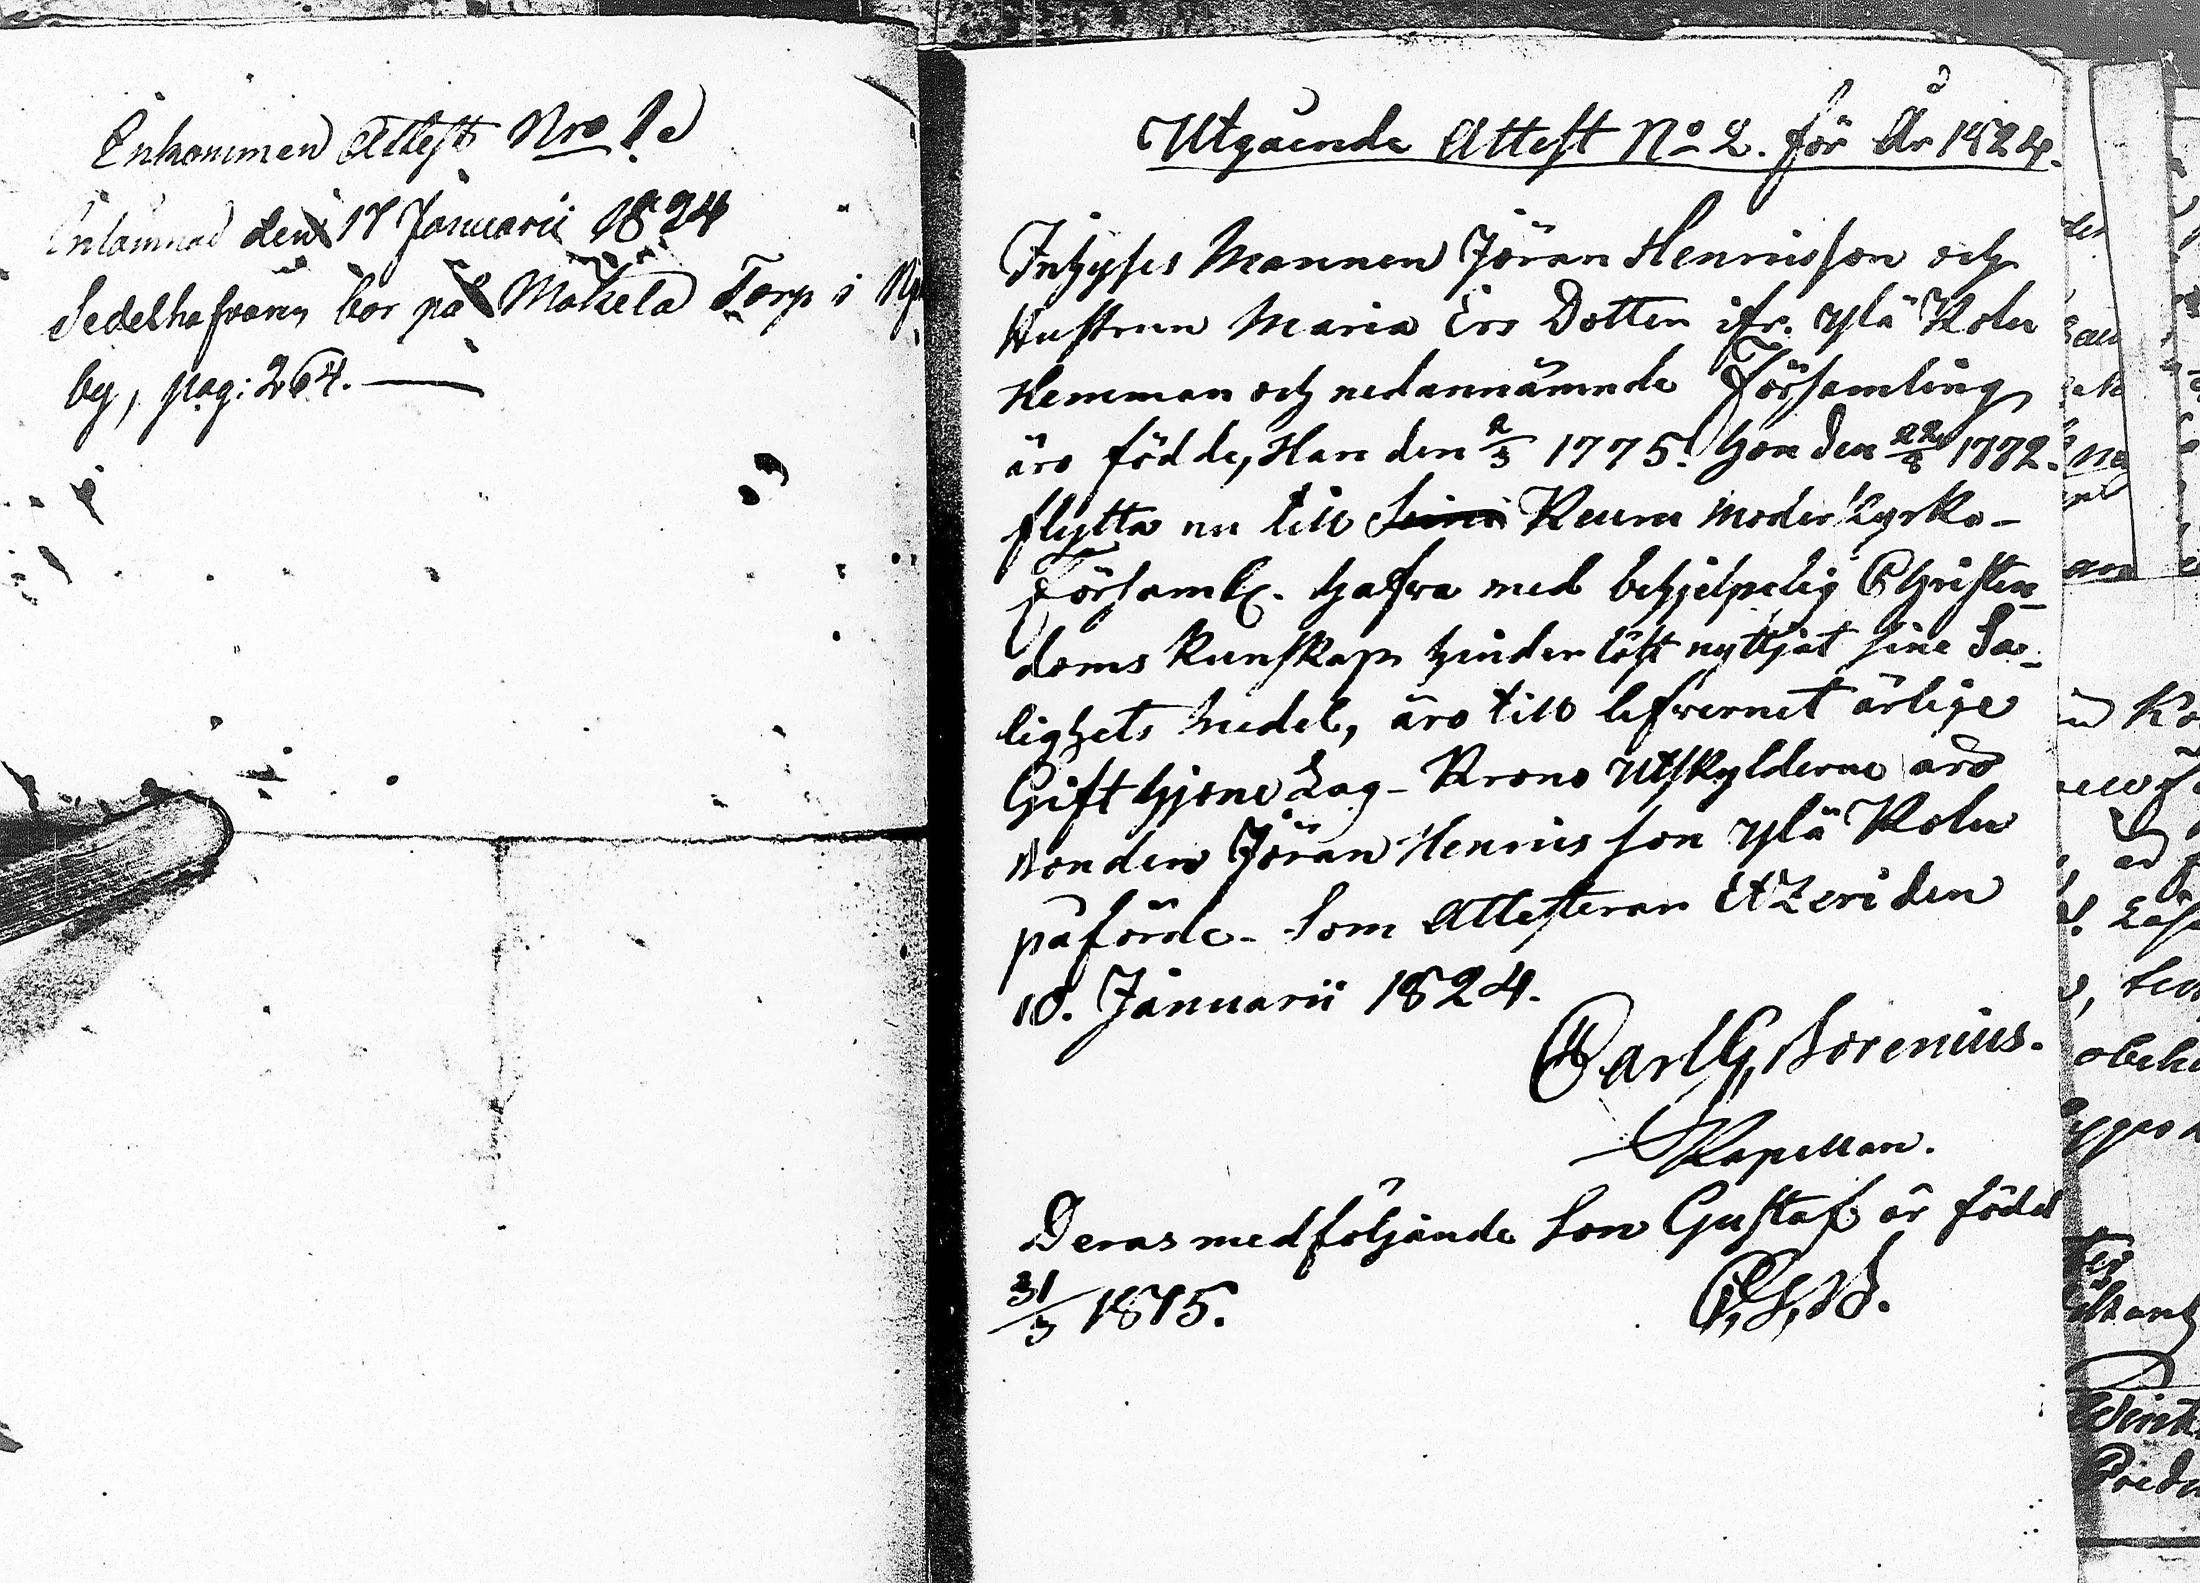 Inkommen Attest Nro 1.
Inlämnad den 17 Januarii 1824
Sedelhafvarn bor på Mäkelä Torp i
by, pag: 264.
Utgående Attest No 2. för År 1824.
Inhyses Mannen Jöran Henricsson och
Hustrun Maria Ers Dotter ifr. Ylä Kolu
Hemman och nedannämnde Församling
äro födde, Han den 2/3 1775. hon den 22/8 1782.
flytta nu till Keuru Moder kyrko-
Församl. hafva med behjelpelig Christen-
doms kunskap hinderlöst nyttjat sine Sa-
lighets medel, äro till lefvernet ärlige
Gift hjone Lag- Krono Utskylderne äro
Bonden Jöran Henricsson Ylä Kolu
påförde. Som Attesteran Etzeri den
10. Januarii 1824.
Carl G. Borenius.
Kapellan.
Deras medföljande Son Gustaf är född
31/3 1815.
C. G. B.